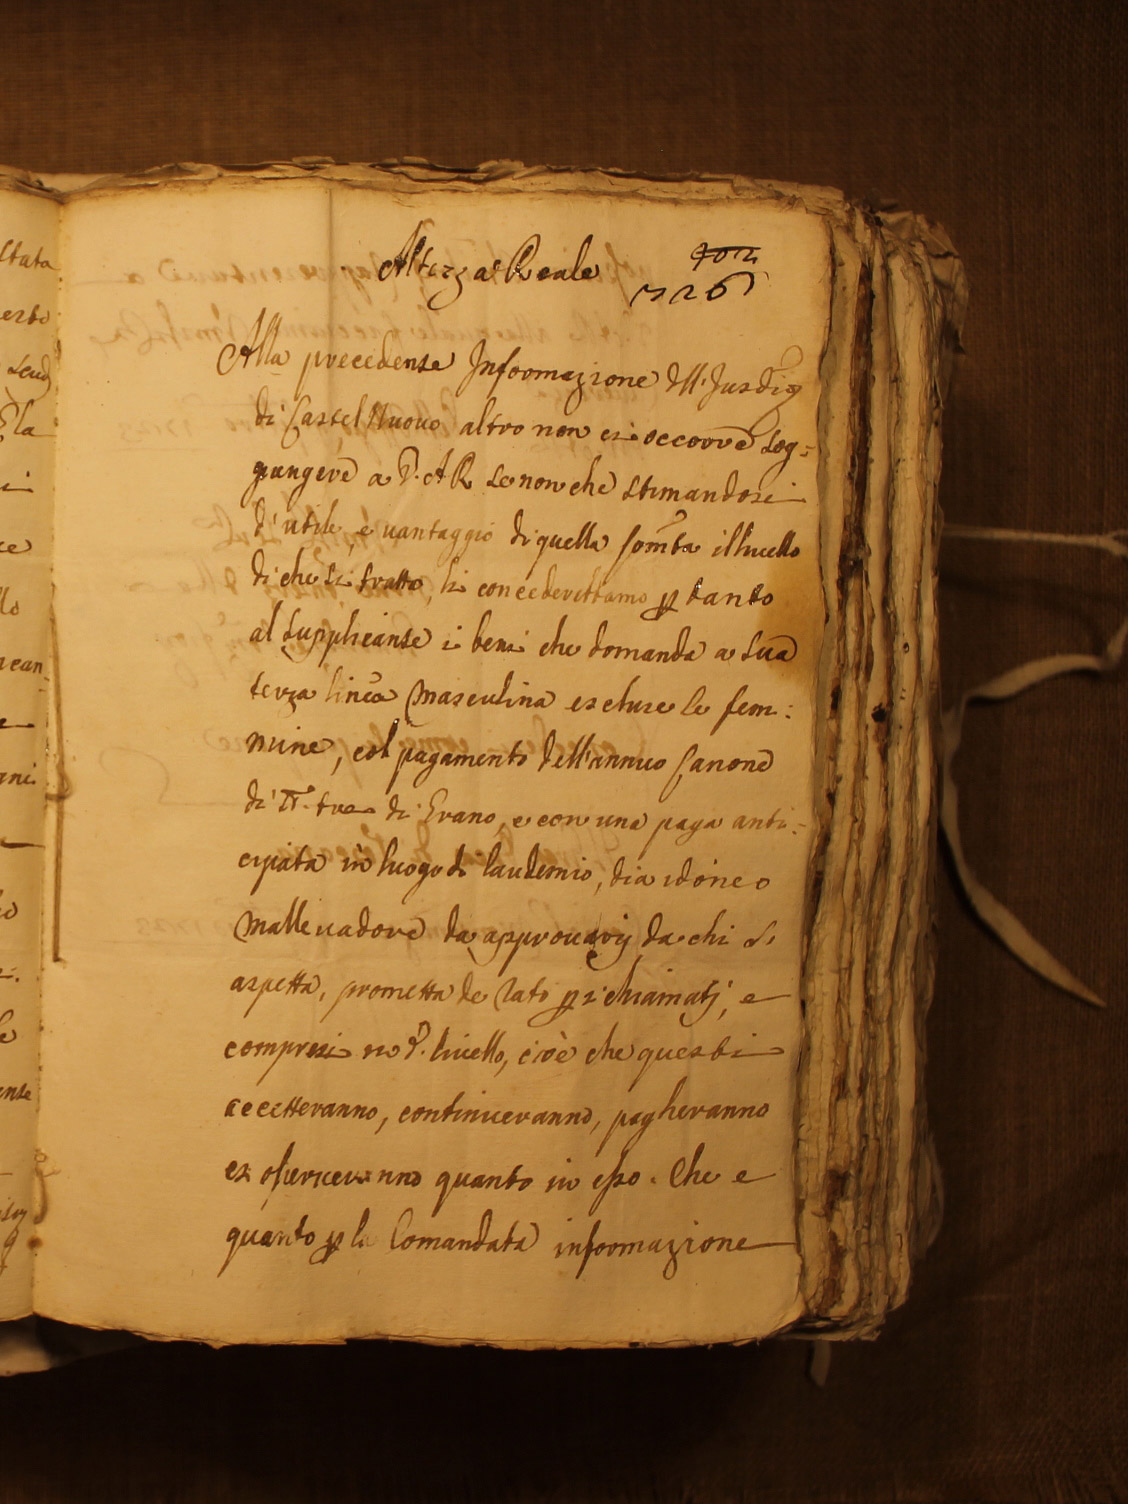 Altezza Reale
702
326
Alla precedente Informazione dell' Jusdic.
di Castel Nuovo altro non ci occorre sog=
giungere a V. A R se non che stimandosi
d'utile, e vantaggio di quella Com.ta il livello
di che si tratta, li concederebbamo p tanto
al supplicante i beni che domanda a sua
terza linea masculina escluse le fem:
mine, col pagamento dell'annuo Canone
di tre di Grano, e con una paga anti:
cipata in luogo di laudemio, dia idoneo
Mallevadore da approvarsi da chi si
aspetta, prometta de rato p i chiamati, e
compresi no d. livello, cioè che questi
accetteranno, continueranno, pagheranno
et osserveranno quanto in esso. Che e
quanto p la Comandata informazione
stata
la
lo